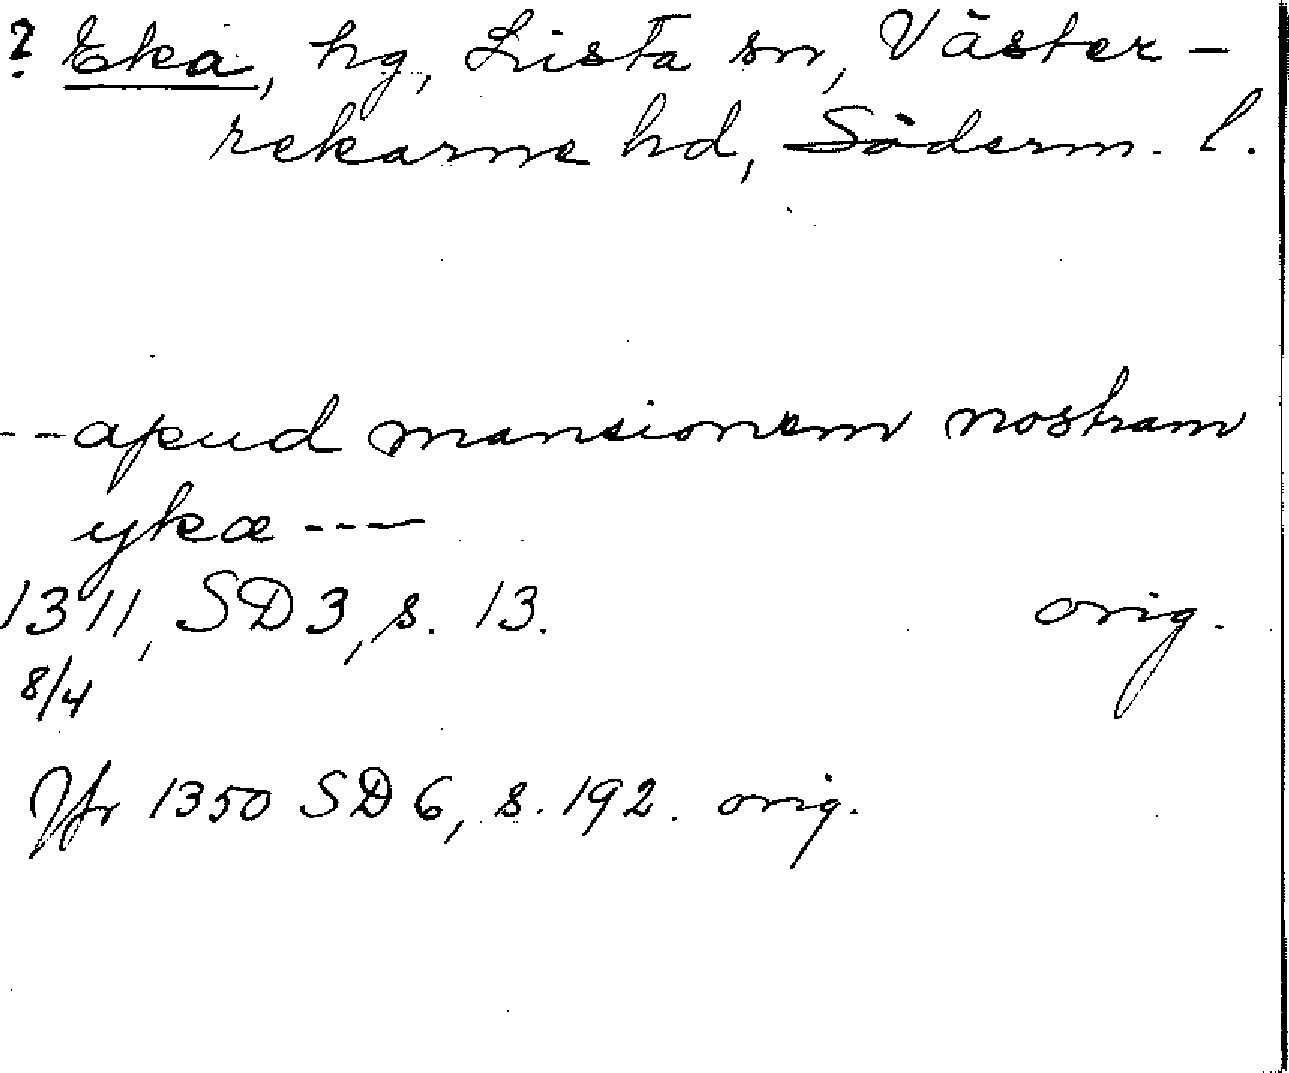 ? Eka, hg, Lista sn, Väster-
rekarne hd, Söderm. l.
--apud mansionem nostram
ykæ ---
1311, SD 3, s. 13. orig.
8/4
Jfr 1350 SD 6, s. 192. orig.